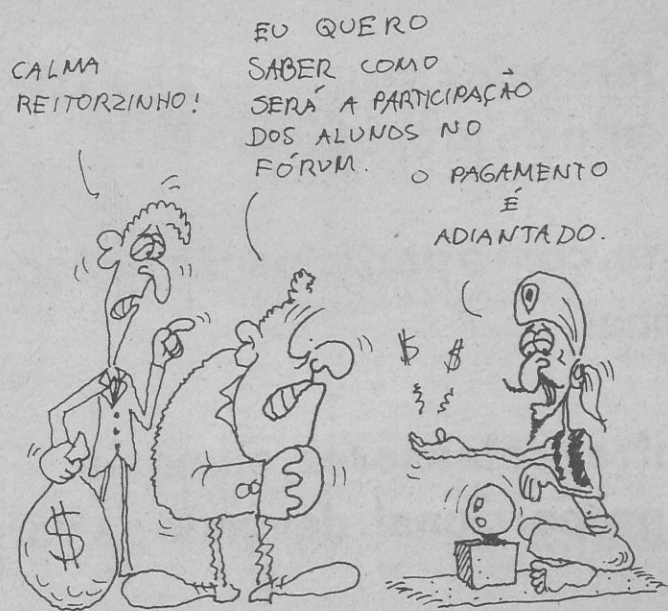 CALMA
REITORZINHO!
EU QUERO
SABER COMO
SERÁ A PARTICIPAÇÃO
DOS ALUNOS NO
FÓRUM.
O PAGAMENTO
É
ADIANTADO.
$ $
$